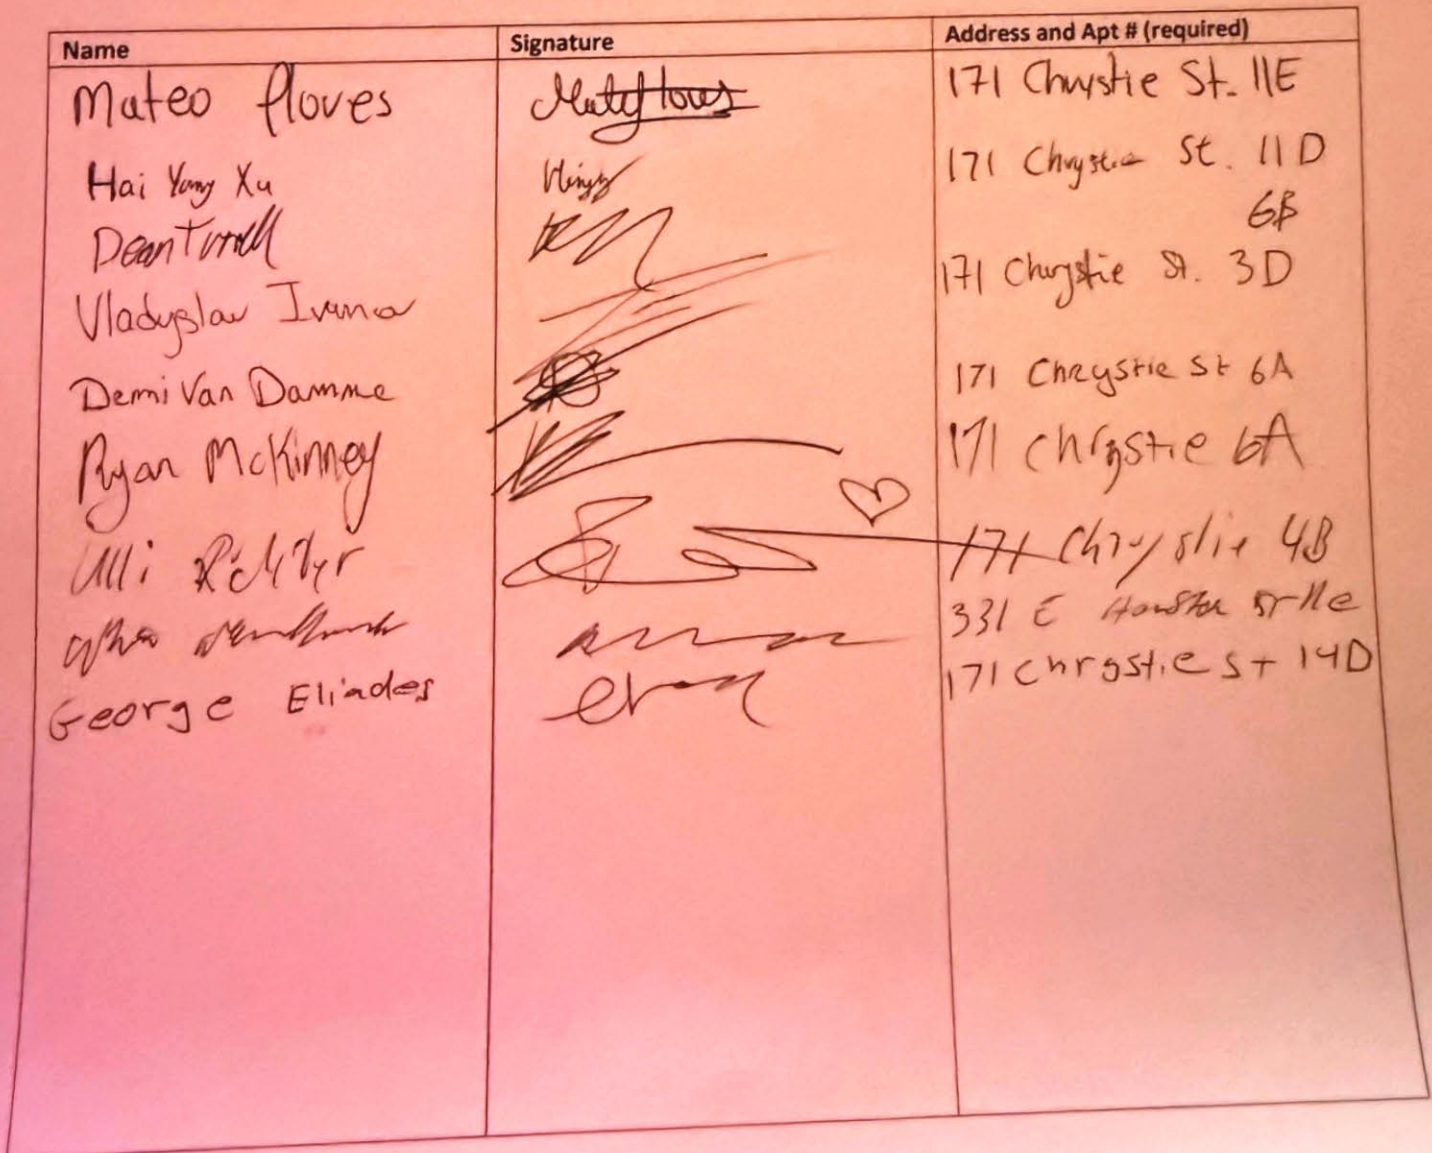 Name Signature Address and Apt # (required)
Mateo Flores Mateo Flores 171 Chrystie St. 11E
Hai Yong Xu 171 Chrystie St. 11D
Dean 6B
Vladyslav 171 Chrystie St. 3D
Demi Van Damme 171 Chrystie St 6A
Ryan McKinney 171 Chrystie 6A
Ulli Richter 171 Chrystie 4B
331 E Houston St 11e
George Eliades 171 Chrystie St 14D